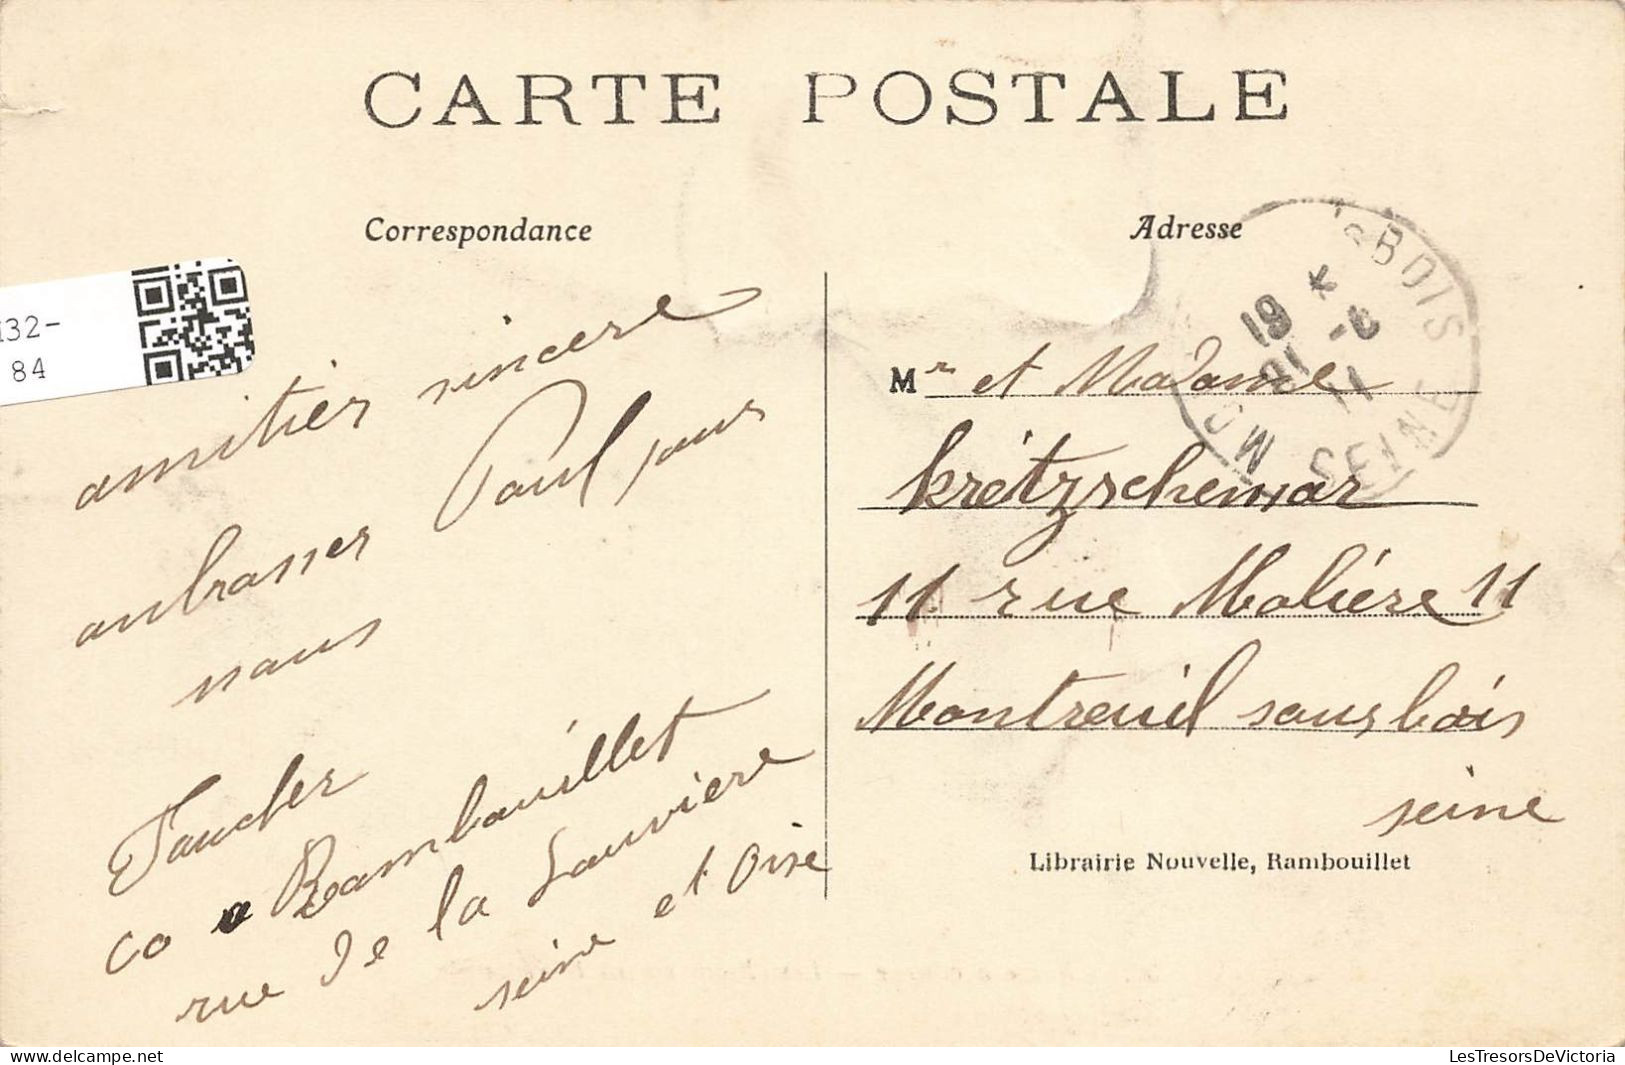 CARTE POSTALE
Correspondance
amitier sincere
anbrasser Paul pour
nous
Faucher
co a Rambouillet
rue de la Louviere
seine et Oise
Adresse
Mr et Madame
kretzschemar
11 rue Molière 11
Montreuil sous bois
seine
Librairie Nouvelle, Rambouillet
s BOIS
19 *
21 -8
11
MO SEINE
132-
84
LesTresorsDeVictoria
https://www.delcampe.net